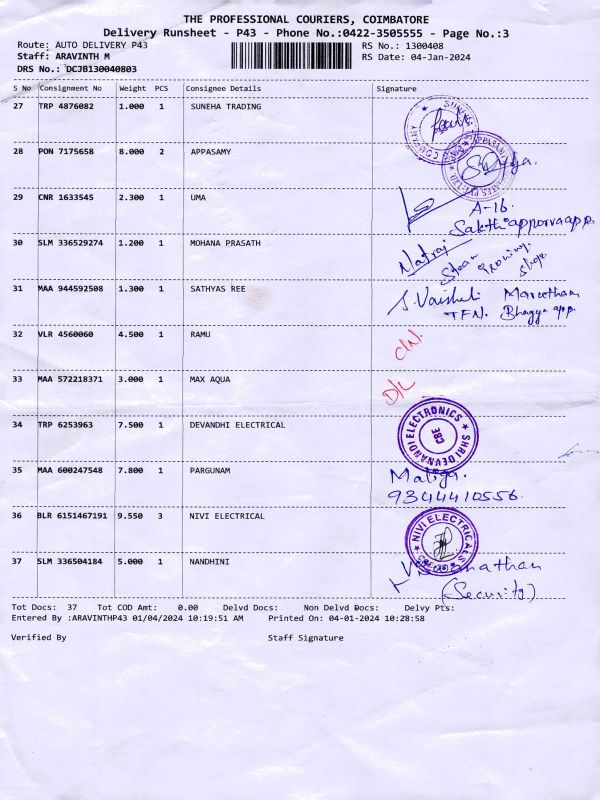 THE PROFESSIONAL COURIERS, COIMBATORE
Delivery Runsheet - P43 - Phone No.:0422-3505555 - Page No.:3
Route: AUTO DELIVERY P43 RS No.: 1300408
Staff: ARAVINTH M RS Date: 04-Jan-2024
DRS No.: DCJB130040803
S No Consignment No Weight PCS Consignee Details Signature
27 TRP 4876082 1.000 1 SUNEHA TRADING
28 PON 7175658 8.000 2 APPASAMY
29 CNR 1633545 2.300 1 UMA
A-16
Sakthi apporva app.
30 SLM 336529274 1.200 1 MOHANA PRASATH
Natraj Steam ironing shop.
31 MAA 944592508 1.300 1 SATHYAS REE
Bhagya app.
32 VLR 4560060 4.500 1 RAMU
33 MAA 572218371 3.000 1 MAX AQUA
D/L
34 TRP 6253963 7.500 1 DEVANDHI ELECTRICAL
SHRI DEVNANDI ELECTRONICS CBE
35 MAA 600247548 7.800 1 PARGUNAM
9344410556
36 BLR 6151467191 9.550 3 NIVI ELECTRICAL
NIVI ELECTRICALS
37 SLM 336504184 5.000 1 NANDHINI
(Security)
Tot Docs: 37 Tot COD Amt: 0.00 Delvd Docs: Non Delvd Docs: Delvy Pts:
Entered By :ARAVINTHP43 01/04/2024 10:19:51 AM Printed On: 04-01-2024 10:28:58
Verified By Staff Signature